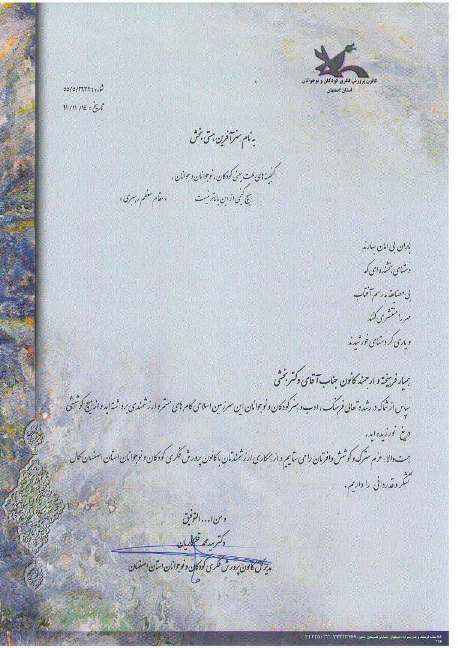 کانون پرورش فکری کودکان و نوجوانان
استان اصفهان
شماره
تاریخ: ۹۱/۱۱/۱۴
به نام هنر آفرین هستی بخش
گنجینه‌های ملت یعنی کودکان، نوجوانان و جوانان،
هیچ گنجی از این بالاتر نیست «مقام معظم رهبری»
باران بی امان بهارند
دستهای بخشنده ای که
بی مضایقه به رسم آفتاب
مهر را منتشر می کنند
و یاری گر دستهای خورشیدند
همیار فرهیخته و ارجمند کانون جناب آقای دکتر بخشی
سپاس از شما که در رشد و تعالی فرهنگ، ادب و هنر کودکان و نوجوانان این سرزمین اسلامی گام های مستمر و ارزشمندی برداشته اید و از هیچ کوششی
دریغ نورزیده اید.
همت والا، عزم مشترک و کوشش وافرتان را می ستاییم و از همکاری ارزشمندتان با کانون پرورش فکری کودکان و نوجوانان استان اصفهان کمال
تشکر و قدردانی را داریم.
و من ا... التوفیق
دکتر سید محمد
مدیر کل کانون پرورش فکری کودکان و نوجوانان استان اصفهان